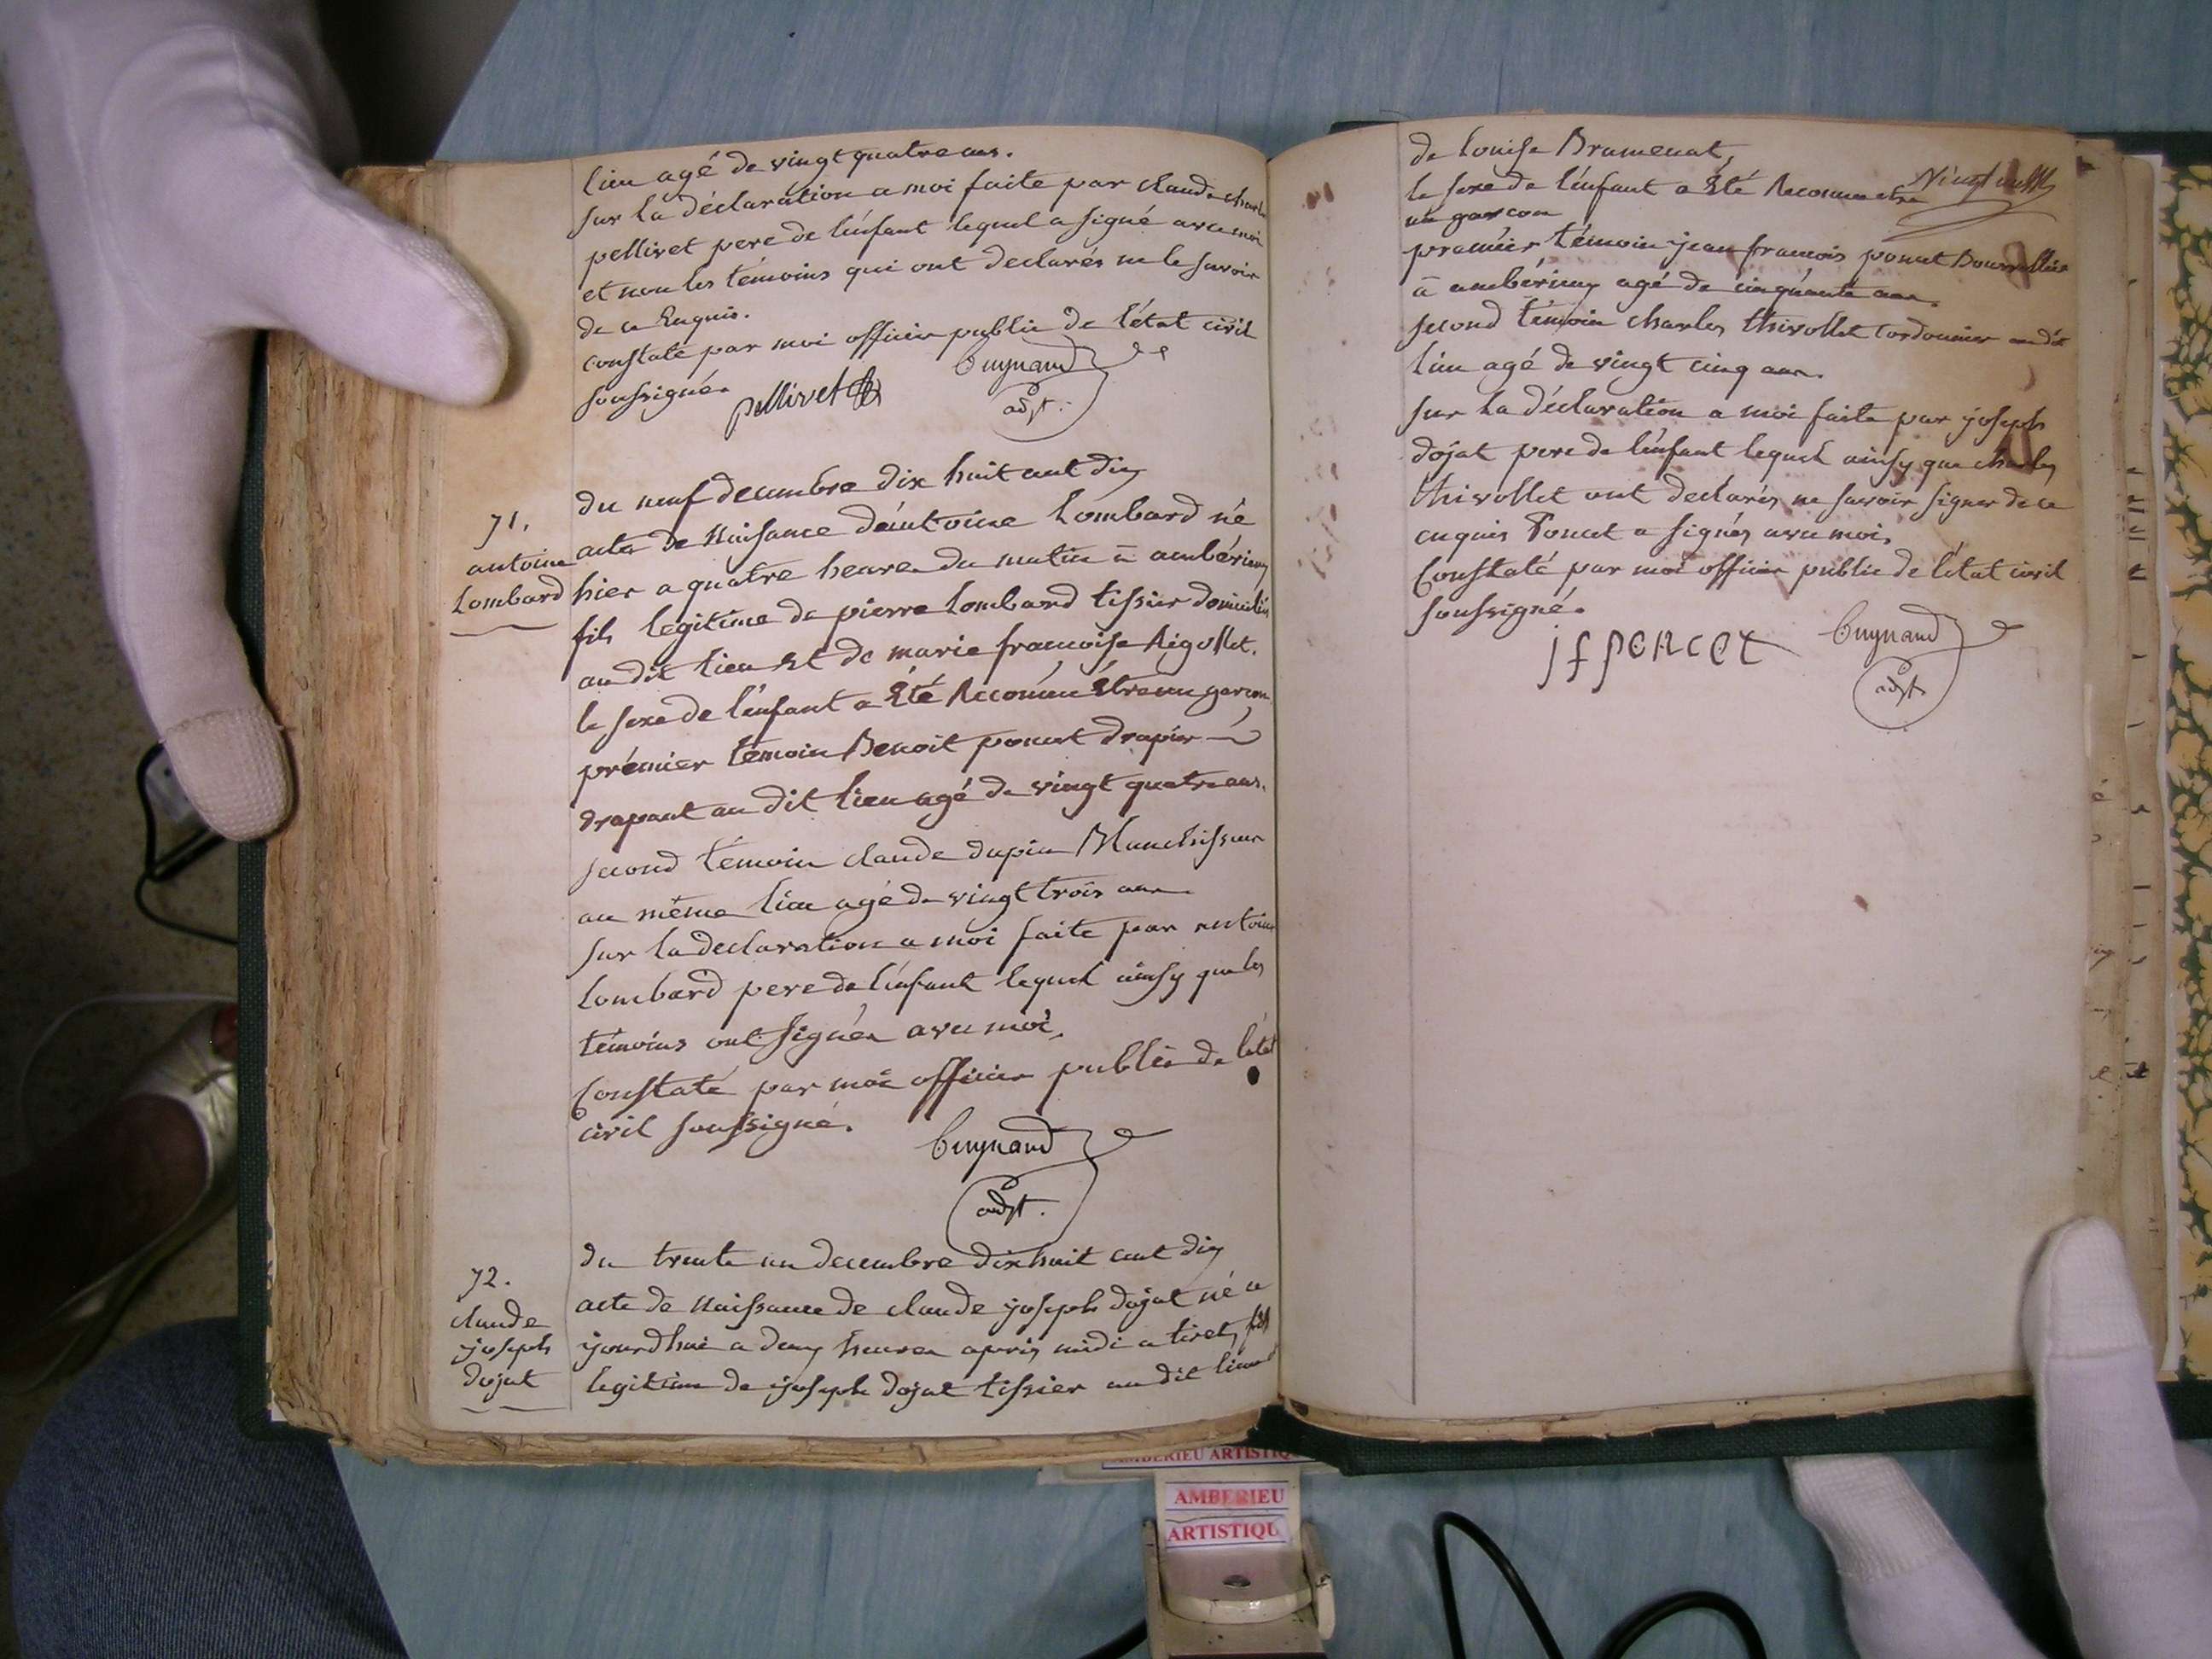 lieu agé de vingt quatre ans.
sur la déclaration a moi faite par claude charle
pellivet pere de l'enfant lequel a signé avec moi
et non les témoins qui ont declarés ne le savoir
de ce Enquis.
constaté par moi officier public de l'état civil
soussigné.
pellivet
Guynand
adjt.
71.
antoine
Lombard
du neuf decembre dix huit cent dix
acte de Naissance d'antoine Lombard né
hier a quatre heures du matin à ambérieux
fils legitime de pierre Lombard tissier domicilié
au dit lieu Et de marie francoise Rigollet.
le sexe de l'enfant a Eté Reconnu Etre un garcon
prémier témoin Benoit poncet drapier
drapant au dit lieu agé de vingt quatre ans.
second témoin claude dupin Blanchisseur
au même lieu agé de vingt trois ans
sur la declaration a moi faite par antoine
Lombard pere de l'enfant lequel ainsy que les
témoins ont signés avec moi.
Constaté par moi officier public de l'état
civil soussigné.
Guynand
adjt.
72.
claude
joseph
dojat
du trente un decembre dix huit cent dix
acte de Naissance de claude joseph dojat né ce
jourd'hui a deux heures après midi a tiret, fils
legitime de joseph dojat tissier au dit lieu et
de Louise Bramenat,
le sexe de l'enfant a Eté Reconnu etre
un garcon
premier témoin jean francois poncet Bourrellier
à ambérieux agé de cinquante ans.
second témoin charles thivollet Cordonnier au dit
lieu agé de vingt cinq ans.
sur la déclaration a moi faite par joseph
dojat pere de l'enfant lequel ainsy que charles
thivollet ont declarés ne savoir signer de ce
enquis Poncet a signés avec moi.
Constaté par moi officier public de l'état civil
soussigné.
jf poncet
Guynand
adjt
AMBERIEU ARTISTIQ
AMBERIEU
ARTISTIQU